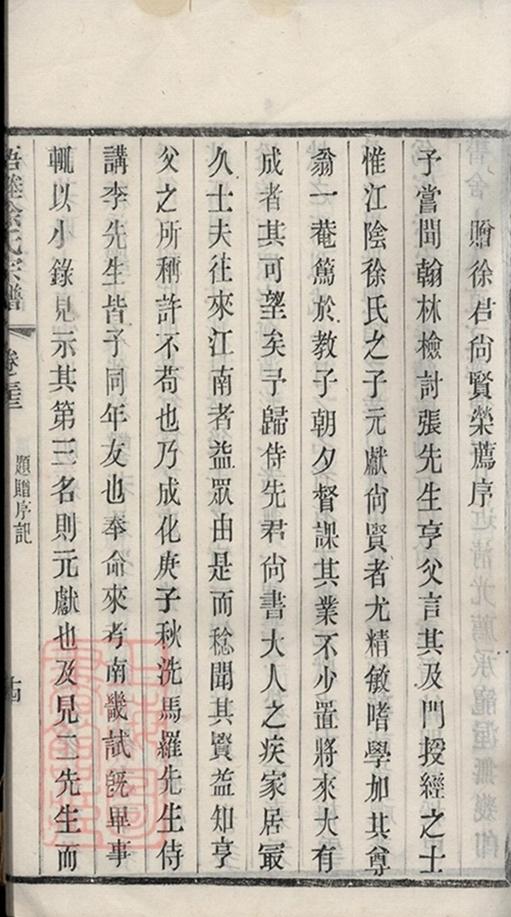 贈徐君尙賢榮薦序
予嘗聞翰林檢討張先生亨父言其及門授經之士
惟江陰徐氏之子元獻尙賢者尤精敏嗜學加其尊
翁一菴篤於教子朝夕督課其業不少置將來大有
成者其可望矣予歸侍先君尙書大人之疾家居寂
久士夫往來江南者益眾由是而稔聞其賢益知亨
父之所稱許不苟也乃成化庚子秋洗馬羅先生侍
講李先生皆予同年友也奉命來考南畿試旣畢事
輒以小錄見示其第三名則元獻也及見二先生而
徐氏宗譜
卷
題贈序記